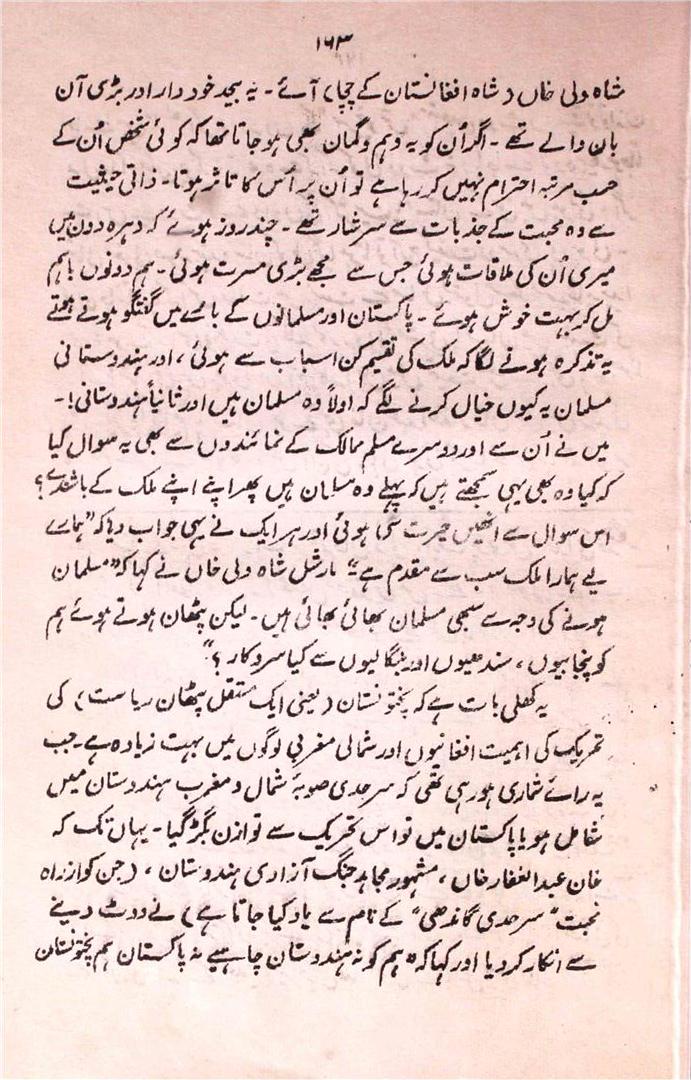 ۱۶۳
شاہ ولی خاں (شاہ افغانستان کے چچا) آئے ۔ یہ بیحد خود دار اور بڑی آن
بان والے تھے ۔ اگر اُن کو یہ وہم و گمان بھی ہو جاتا تھا کہ کوئی شخص اُن کے
حسب مرتبہ احترام نہیں کر رہا ہے تو اُن پر اُس کا تاثر ہوتا ۔ ذاتی حیثیت
سے وہ محبت کے جذبات سے سرشار تھے ۔ چند روز ہوئے کہ دہرہ دون میں
میری اُن کی ملاقات ہوئی جس سے مجھے بڑی مسرت ہوئی ۔ ہم دونوں باہم
مل کر بہت خوش ہوئے ۔ پاکستان اور مسلمانوں کے بارے میں گفتگو ہوتے ہوتے
یہ تذکرہ ہونے لگا کہ ملک کی تقسیم کن اسباب سے ہوئی ، اور ہندوستانی
مسلمان یہ کیوں خیال کرنے لگے کہ اولاً وہ مسلمان ہیں اور ثانیاً ہندوستانی! ۔
میں نے اُن سے اور دوسرے مسلم ممالک کے نمائندوں سے بھی یہ سوال کیا
کہ کیا وہ بھی یہی سمجھتے ہیں کہ پہلے وہ مسلمان ہیں پھر اپنے اپنے ملک کے باشندے ؟
اس سوال سے انھیں حیرت سی ہوئی اور ہر ایک نے یہی جواب دیا کہ "ہمارے
لیے ہمارا ملک سب سے مقدم ہے" مارشل شاہ ولی خاں نے کہا کہ "مسلمان
ہونے کی وجہ سے سبھی مسلمان بھائی بھائی ہیں ۔ لیکن پٹھان ہوتے ہوئے ہم
کو پنجابیوں ، سندھیوں اور بنگالیوں سے کیا سروکار ؟"
یہ کھلی بات ہے کہ پختونستان (یعنی ایک مستقل پٹھان ریاست) کی
تحریک کی اہمیت افغانیوں اور شمالی مغربی لوگوں میں بہت زیادہ ہے ۔ جب
یہ رائے شماری ہو رہی تھی کہ سرحدی صوبۂ شمال و مغرب ہندوستان میں
شامل ہو یا پاکستان میں تو اس تحریک سے توازن بگڑ گیا ۔ یہاں تک کہ
خان عبدالغفار خاں ، مشہور مجاہد جنگ آزادی ہندوستان ، (جن کو از راہ
محبت "سرحدی گاندھی" کے نام سے یاد کیا جاتا ہے) نے ووٹ دینے
سے انکار کر دیا اور کہا کہ "ہم کو نہ ہندوستان چاہیے نہ پاکستان ہم پختونستان